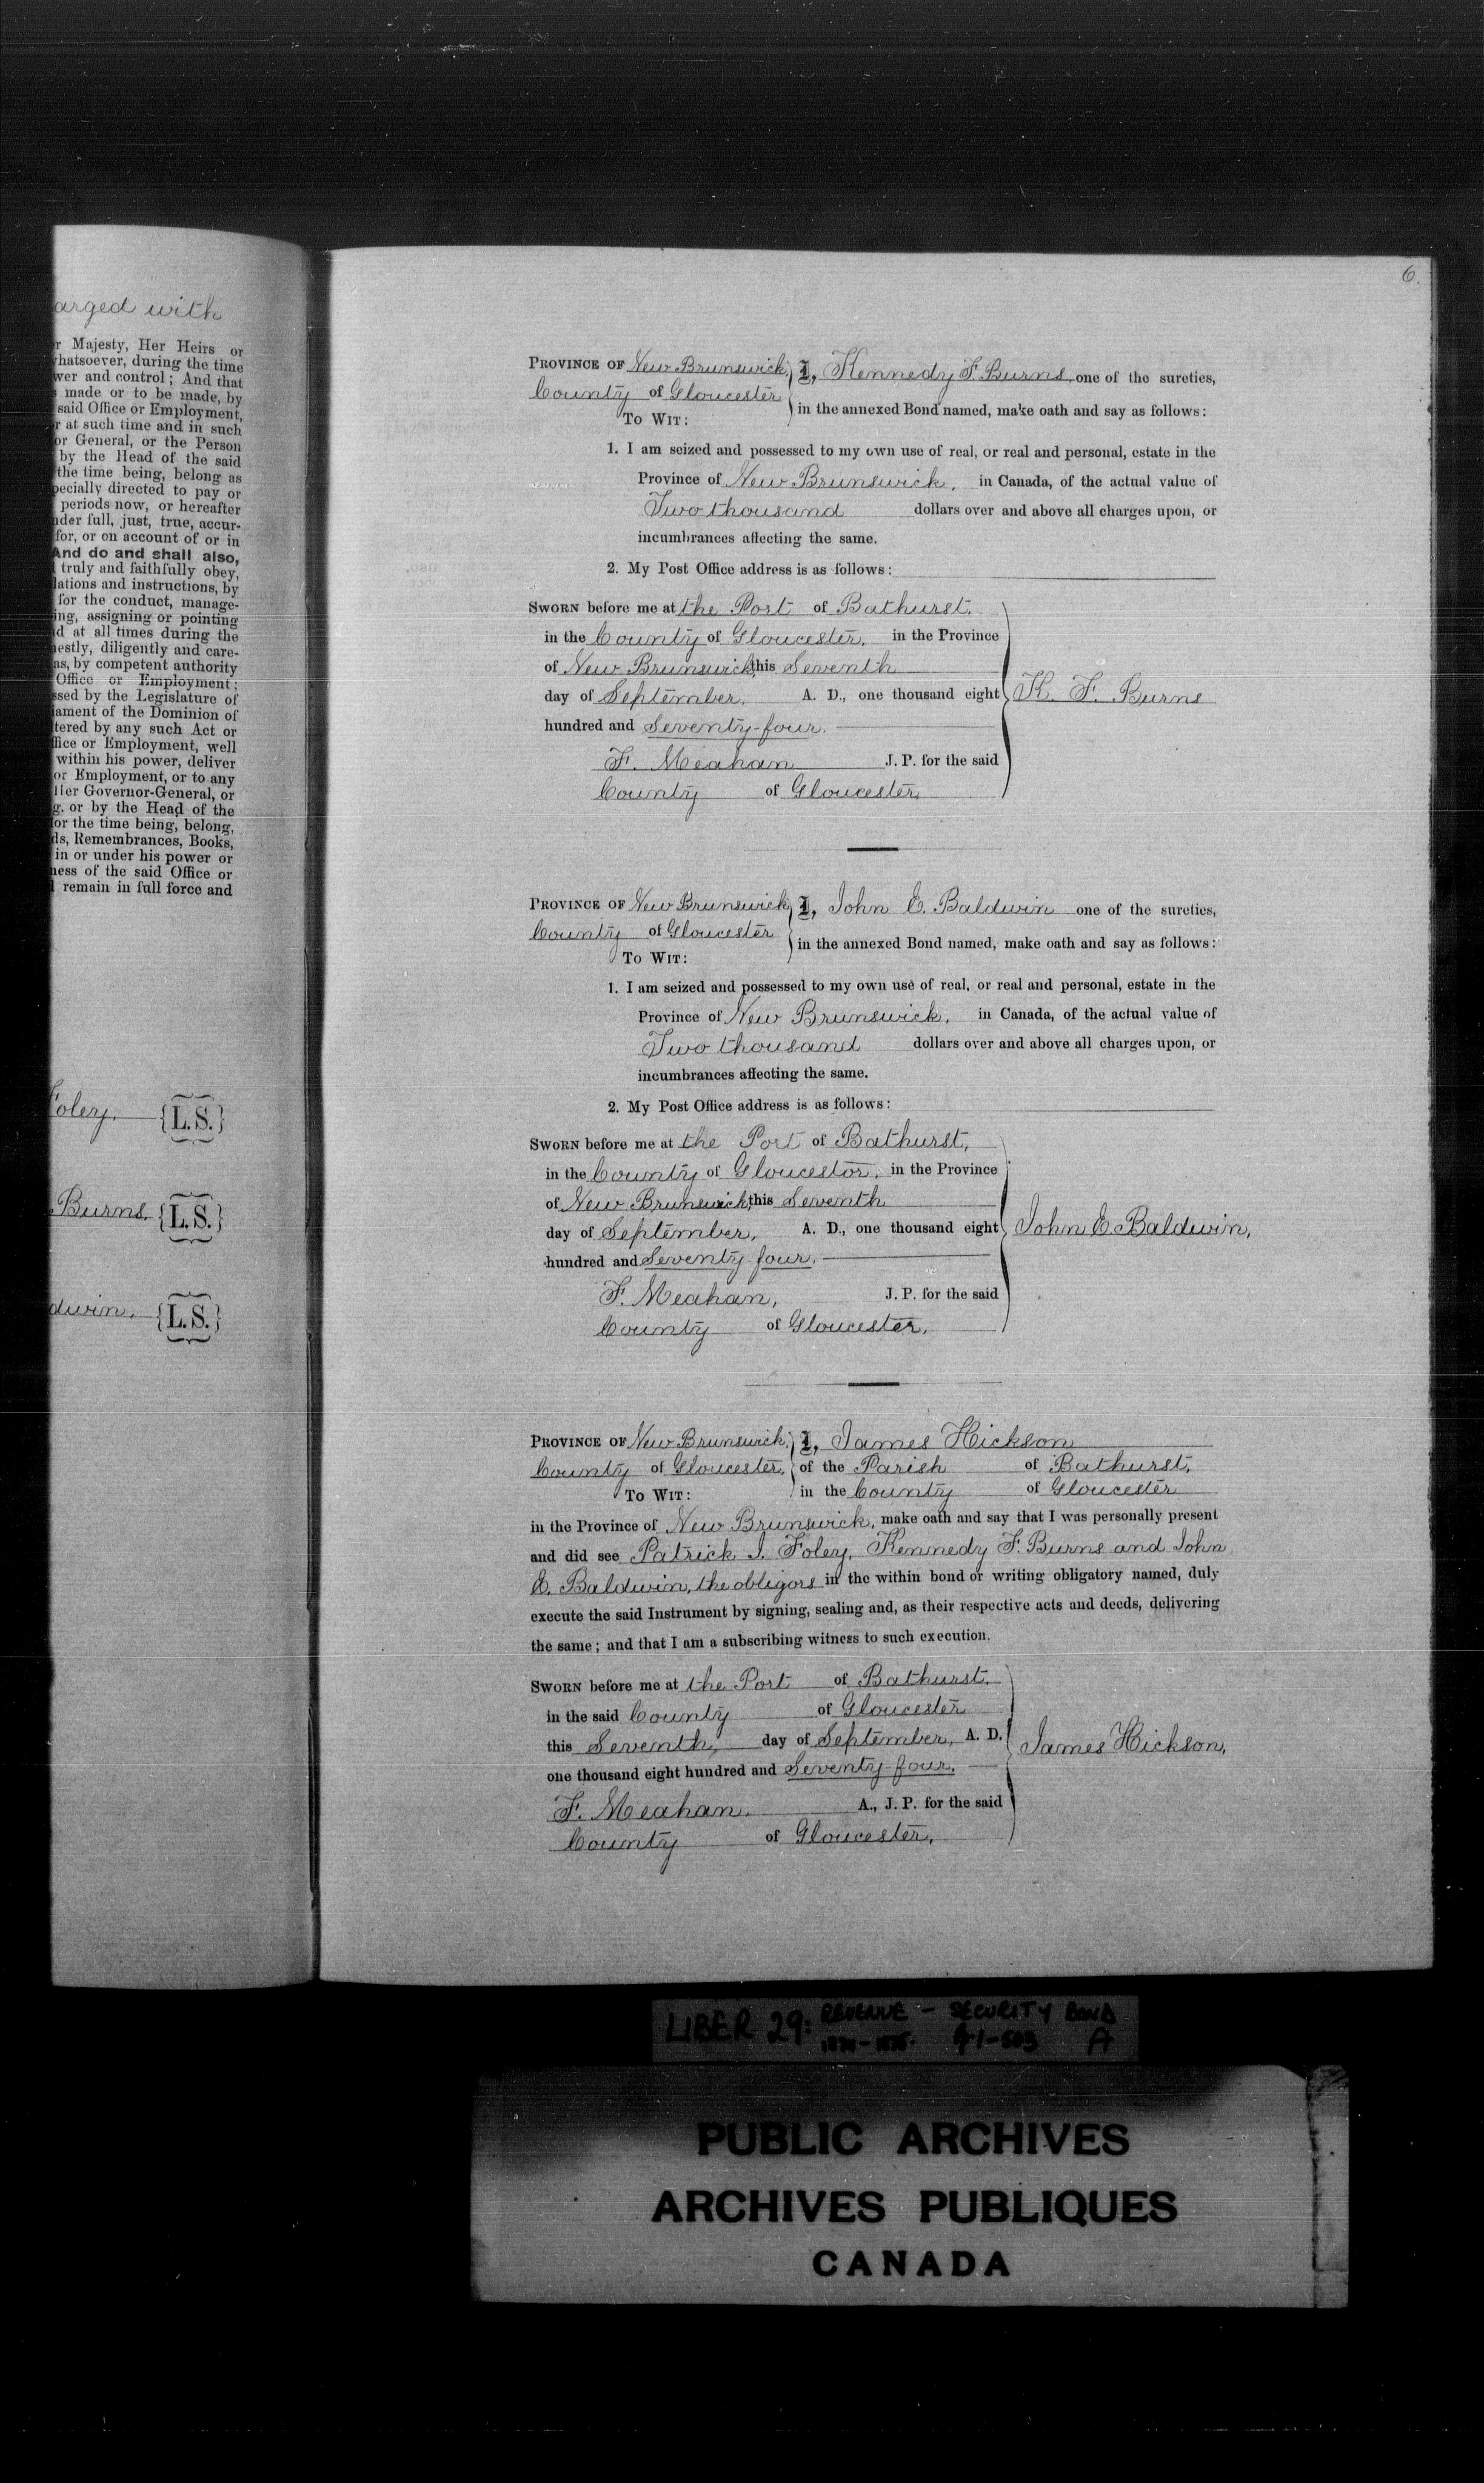 arged with
r Majesty, Her Heirs or
hatsoever, during the time
wer and control; And that
made or to be made, by
said Office or Employment,
r at such time and in such
or General, or the Person
by the Head of the said
the time being, belong as
pecially directed to pay or
periods now, or hereafter
nder full, just, true, accur-
for, or on account of or in
And do and shall also,
truly and faithfully obey,
lations and instructions, by
for the conduct, manage-
ing, assigning or pointing
d at all times during the
nestly, diligently and care-
as, by competent authority
Office or Employment;
ssed by the Legislature of
iament of the Dominion of
tered by any such Act or
ffice or Employment, well
within his power, deliver
or Employment, or to any
Her Governor-General, or
g, or by the Head of the
for the time being, belong,
ds, Remembrances, Books,
in or under his power or
ness of the said Office or
remain in full force and
Foley. {L.S.}
Burns. {L.S.}
dwin. {L.S.}
6.
PROVINCE OF New Brunswick, I, Kennedy F. Burns one of the sureties,
County of Gloucester in the annexed Bond named, make oath and say as follows:
To WIT:
1. I am seized and possessed to my own use of real, or real and personal, estate in the
Province of New Brunswick, in Canada, of the actual value of
Two thousand dollars over and above all charges upon, or
incumbrances affecting the same.
2. My Post Office address is as follows:
SWORN before me at the Port of Bathurst,
in the County of Gloucester, in the Province
of New Brunswick, this Seventh
day of September, A. D., one thousand eight K. F. Burns
hundred and Seventy-four.
F. Meahan J. P. for the said
County of Gloucester,
PROVINCE OF New Brunswick, I, John E. Baldwin one of the sureties,
County of Gloucester in the annexed Bond named, make oath and say as follows:
To WIT:
1. I am seized and possessed to my own use of real, or real and personal, estate in the
Province of New Brunswick, in Canada, of the actual value of
Two thousand dollars over and above all charges upon, or
incumbrances affecting the same.
2. My Post Office address is as follows:
SWORN before me at the Port of Bathurst,
in the County of Gloucester, in the Province
of New Brunswick, this Seventh
day of September, A. D., one thousand eight John E. Baldwin,
hundred and Seventy four.
F. Meahan, J. P. for the said
County of Gloucester.
PROVINCE OF New Brunswick, I, James Hickson
County of Gloucester, of the Parish of Bathurst,
To WIT: in the County of Gloucester
in the Province of New Brunswick, make oath and say that I was personally present
and did see Patrick J. Foley, Kennedy F. Burns and John
E. Baldwin, the obligors in the within bond or writing obligatory named, duly
execute the said Instrument by signing, sealing and, as their respective acts and deeds, delivering
the same; and that I am a subscribing witness to such execution.
SWORN before me at the Port of Bathurst.
in the said County of Gloucester
this Seventh, day of September, A. D. James Hickson,
one thousand eight hundred and Seventy-four.
F. Meahan. A., J. P. for the said
County of Gloucester,
LIBER 29: REVENUE - SECURITY BOND
A
PUBLIC ARCHIVES
ARCHIVES PUBLIQUES
CANADA